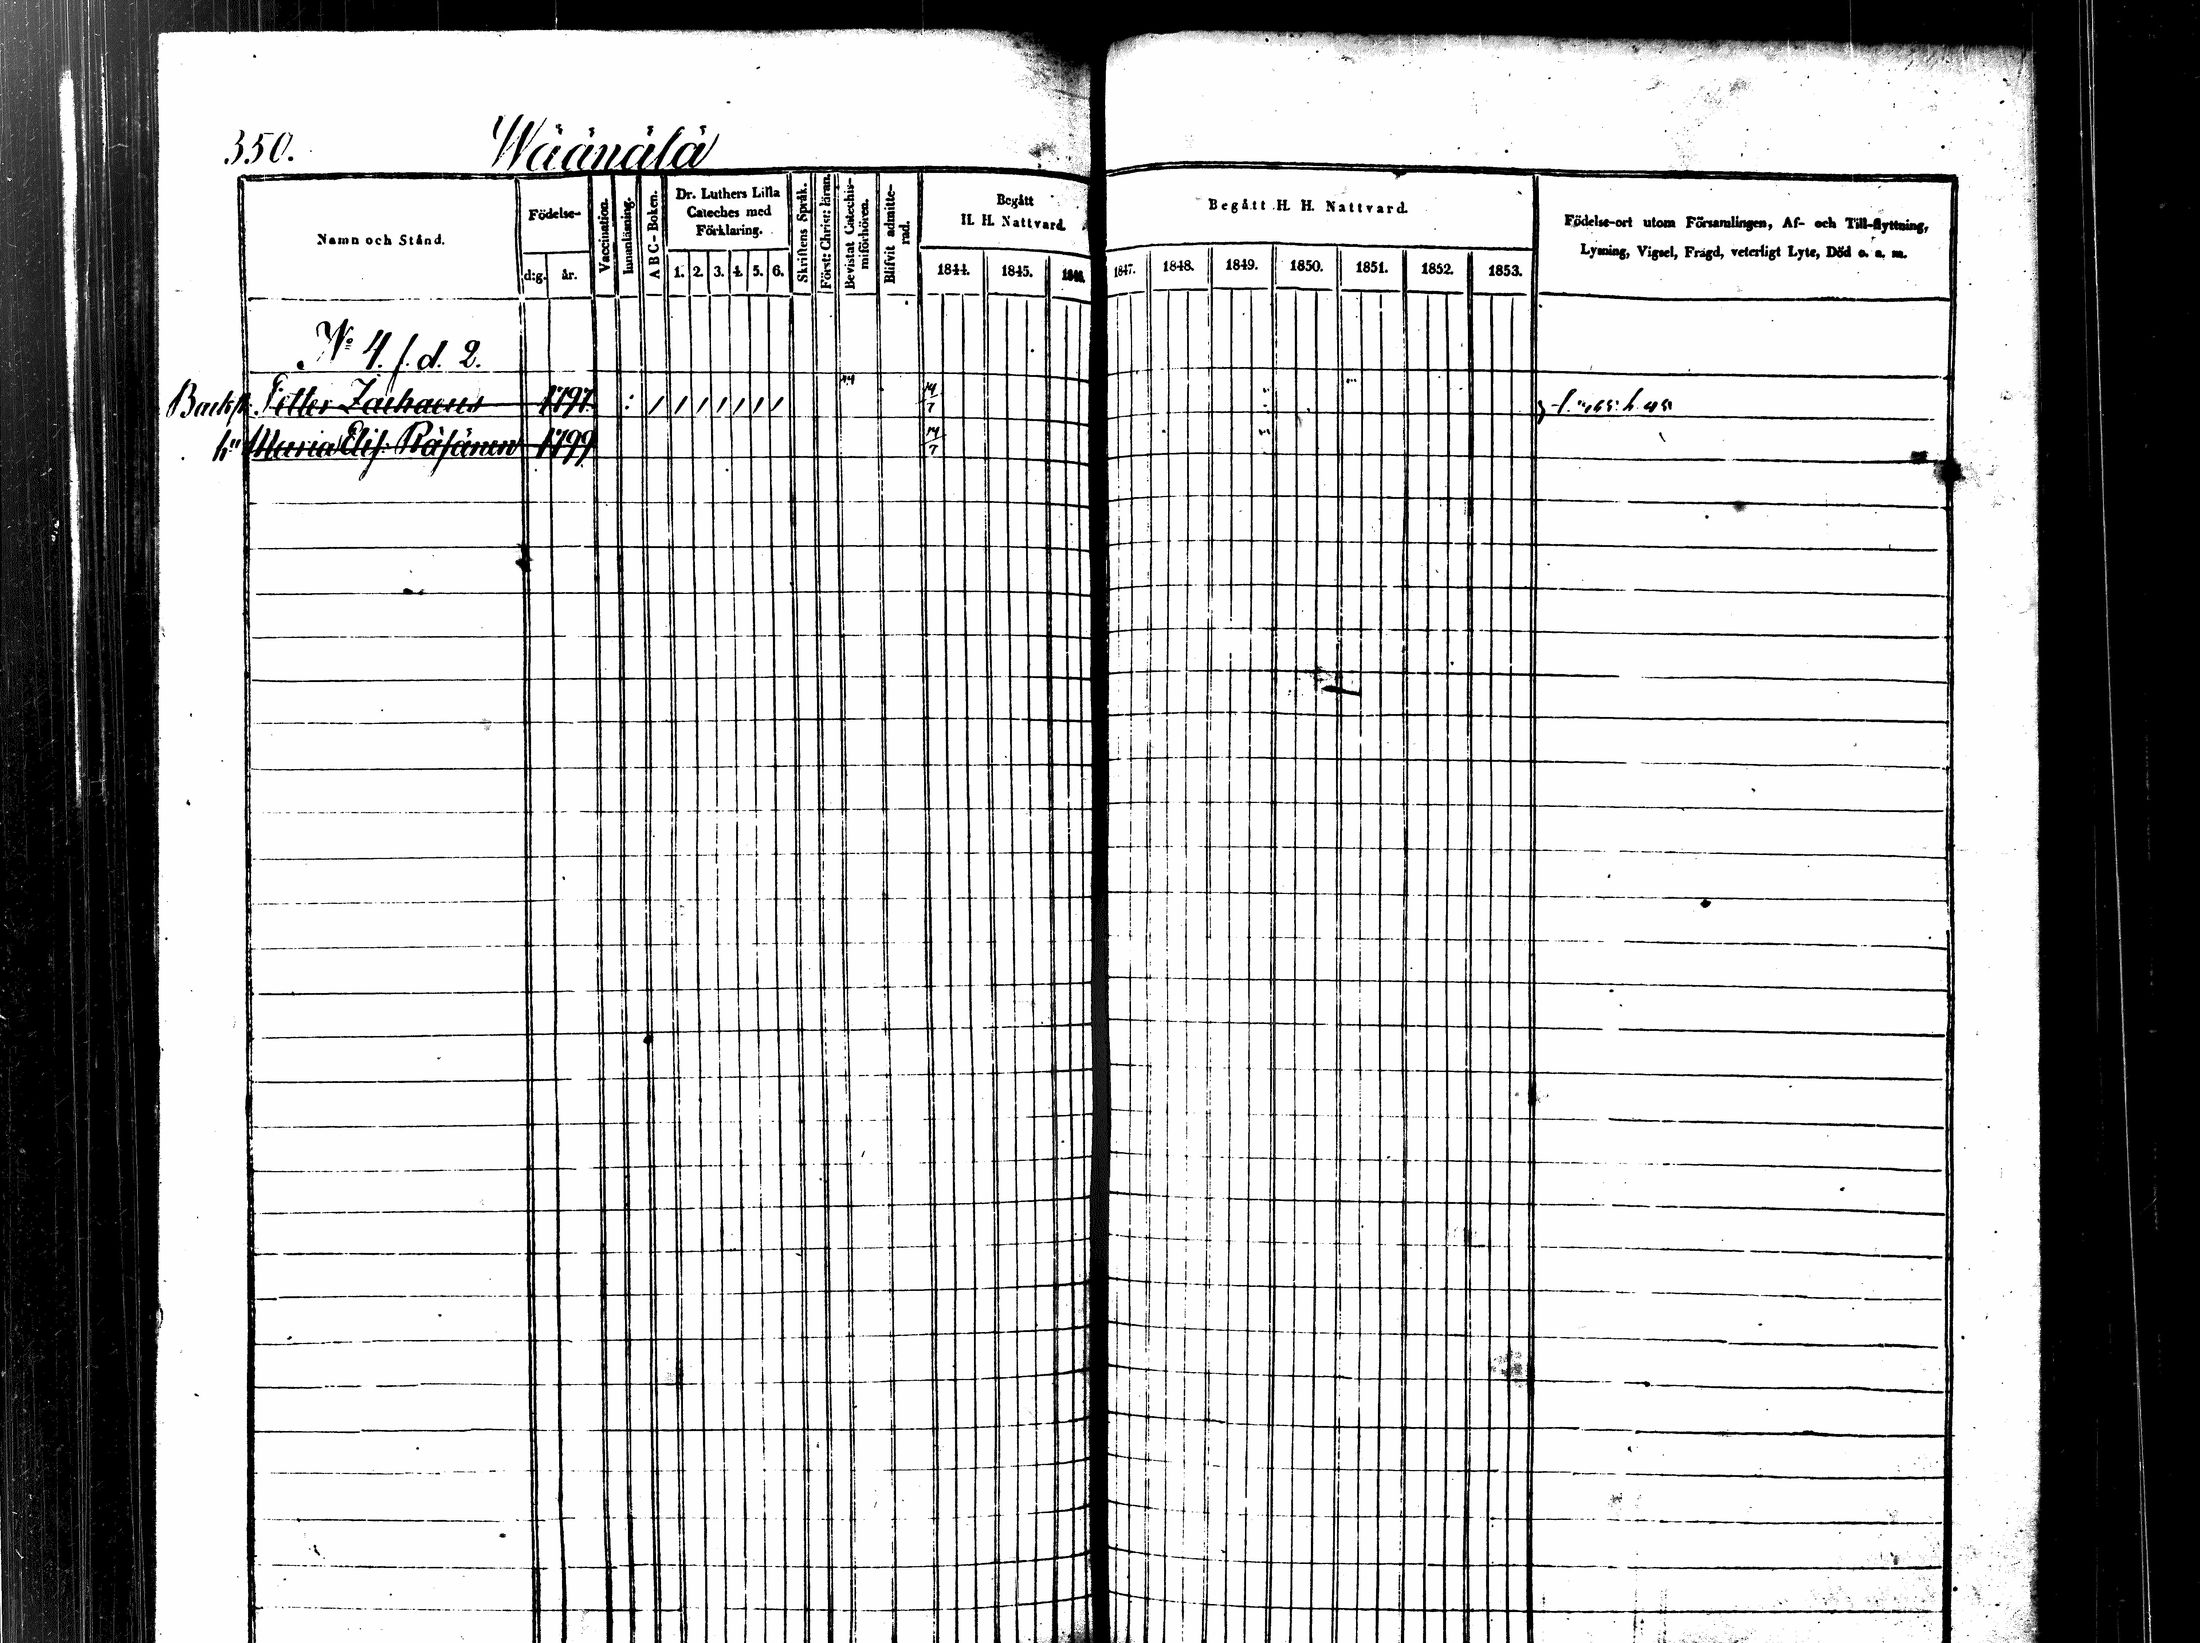 350. Wäänälä
Namn och Stånd.
Födelse-
d:g. år.
Vaccination.
Innanläsning.
A B C-Boken.
Dr. Luthers Lilla
Cateches med
Förklaring.
1. 2. 3. 4. 5. 6.
Skriftens Språk.
Först: Christ: läran.
Bevistat Catechis-
miförhören.
Blifvit admitte-
rad.
Begått
H. H. Nattvard.
1844. 1845. 1846.
Begått H. H. Nattvard.
1847. 1848. 1849. 1850. 1851. 1852. 1853.
Födelse-ort utom Församlingen, Af- och Till-flyttning,
Lysning, Vigsel, Frägd, veterligt Lyte, Död o. s. m.
No 4. f. d. 2.
Petter Zachaeus 1797
hu Maria Elis. Räsänen 1799